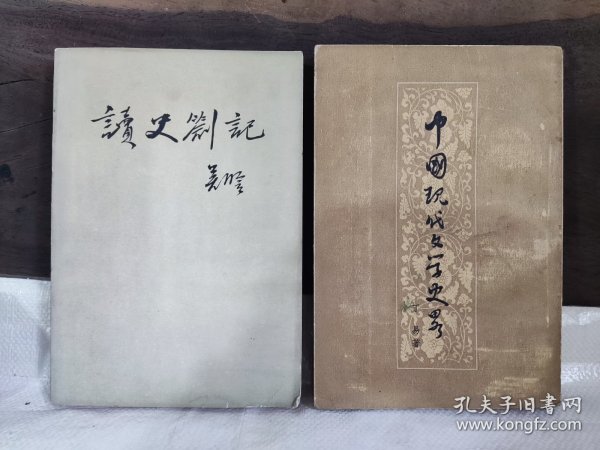 讀史劄記
吴晗
中國现代文学史畧
丁易著
孔夫子旧書网
www.kongfz.com